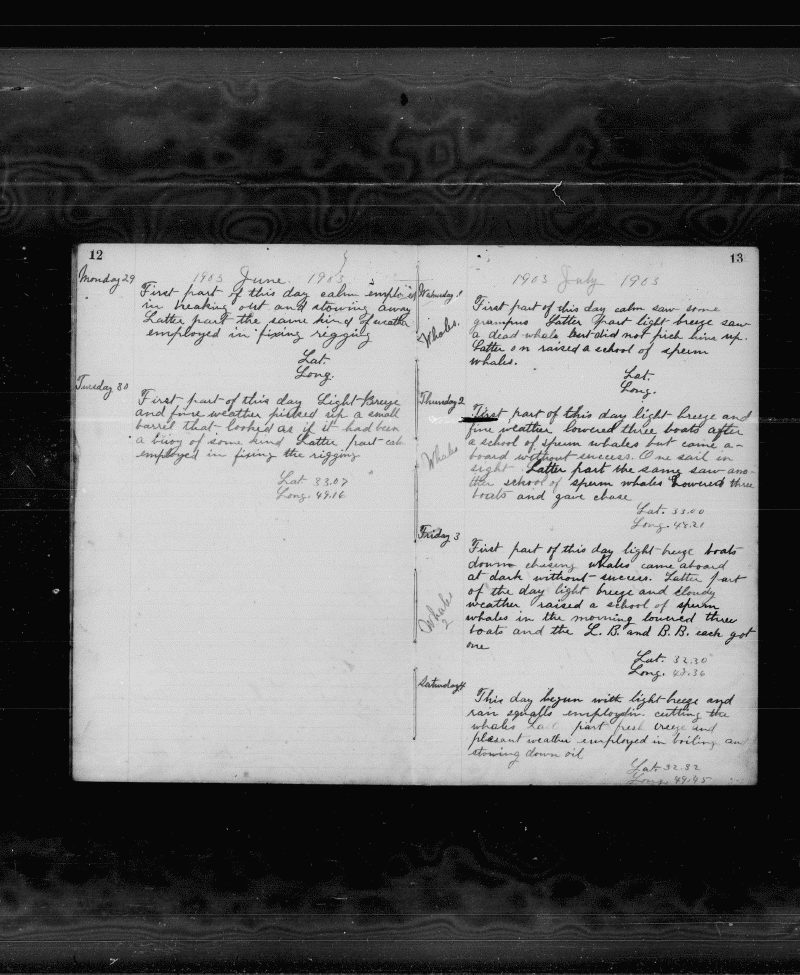 12
1903 June 1903
Monday 29
First part of this day calm employed
in breaking out and stowing away
Latter part the same kind of weather
employed in fixing rigging
Lat.
Long.
Tuesday 30
First part of this day Light Breeze
and fine weather picked up a small
barrel that looked as if it had been
a buoy of some kind Latter part calm
employed in fixing the rigging
Lat 33.07
Long. 49.16
13
1903 July 1903
Wednesday 1
Whales.
First part of this day calm saw some
grampus Latter part light breeze saw
a dead whale but did not pick him up.
Latter on raised a school of sperm
whales.
Lat.
Long.
Thursday 2
Whales
First part of this day light breeze and
fine weather lowered three boats after
a school of sperm whales but came a-
board without success. One sail in
sight Latter part the same saw ano-
ther school of sperm whales Lowered three
boats and gave chase
Lat. 33.00
Long. 48.21
Friday 3
Whales
2
First part of this day light breeze boats
down chasing whales came aboard
at dark without success. Latter part
of the day light breeze and cloudy
weather raised a school of sperm
whales in the morning lowered three
boats and the L. B. and B. B. each got
one
Lat. 32.30
Long. 48.36
Saturday 4
This day begun with light breeze and
rain squalls cutting the
whales part fresh breeze and
pleasant weather employed in boiling and
stowing down oil
Lat 32.32
Long. 49.45